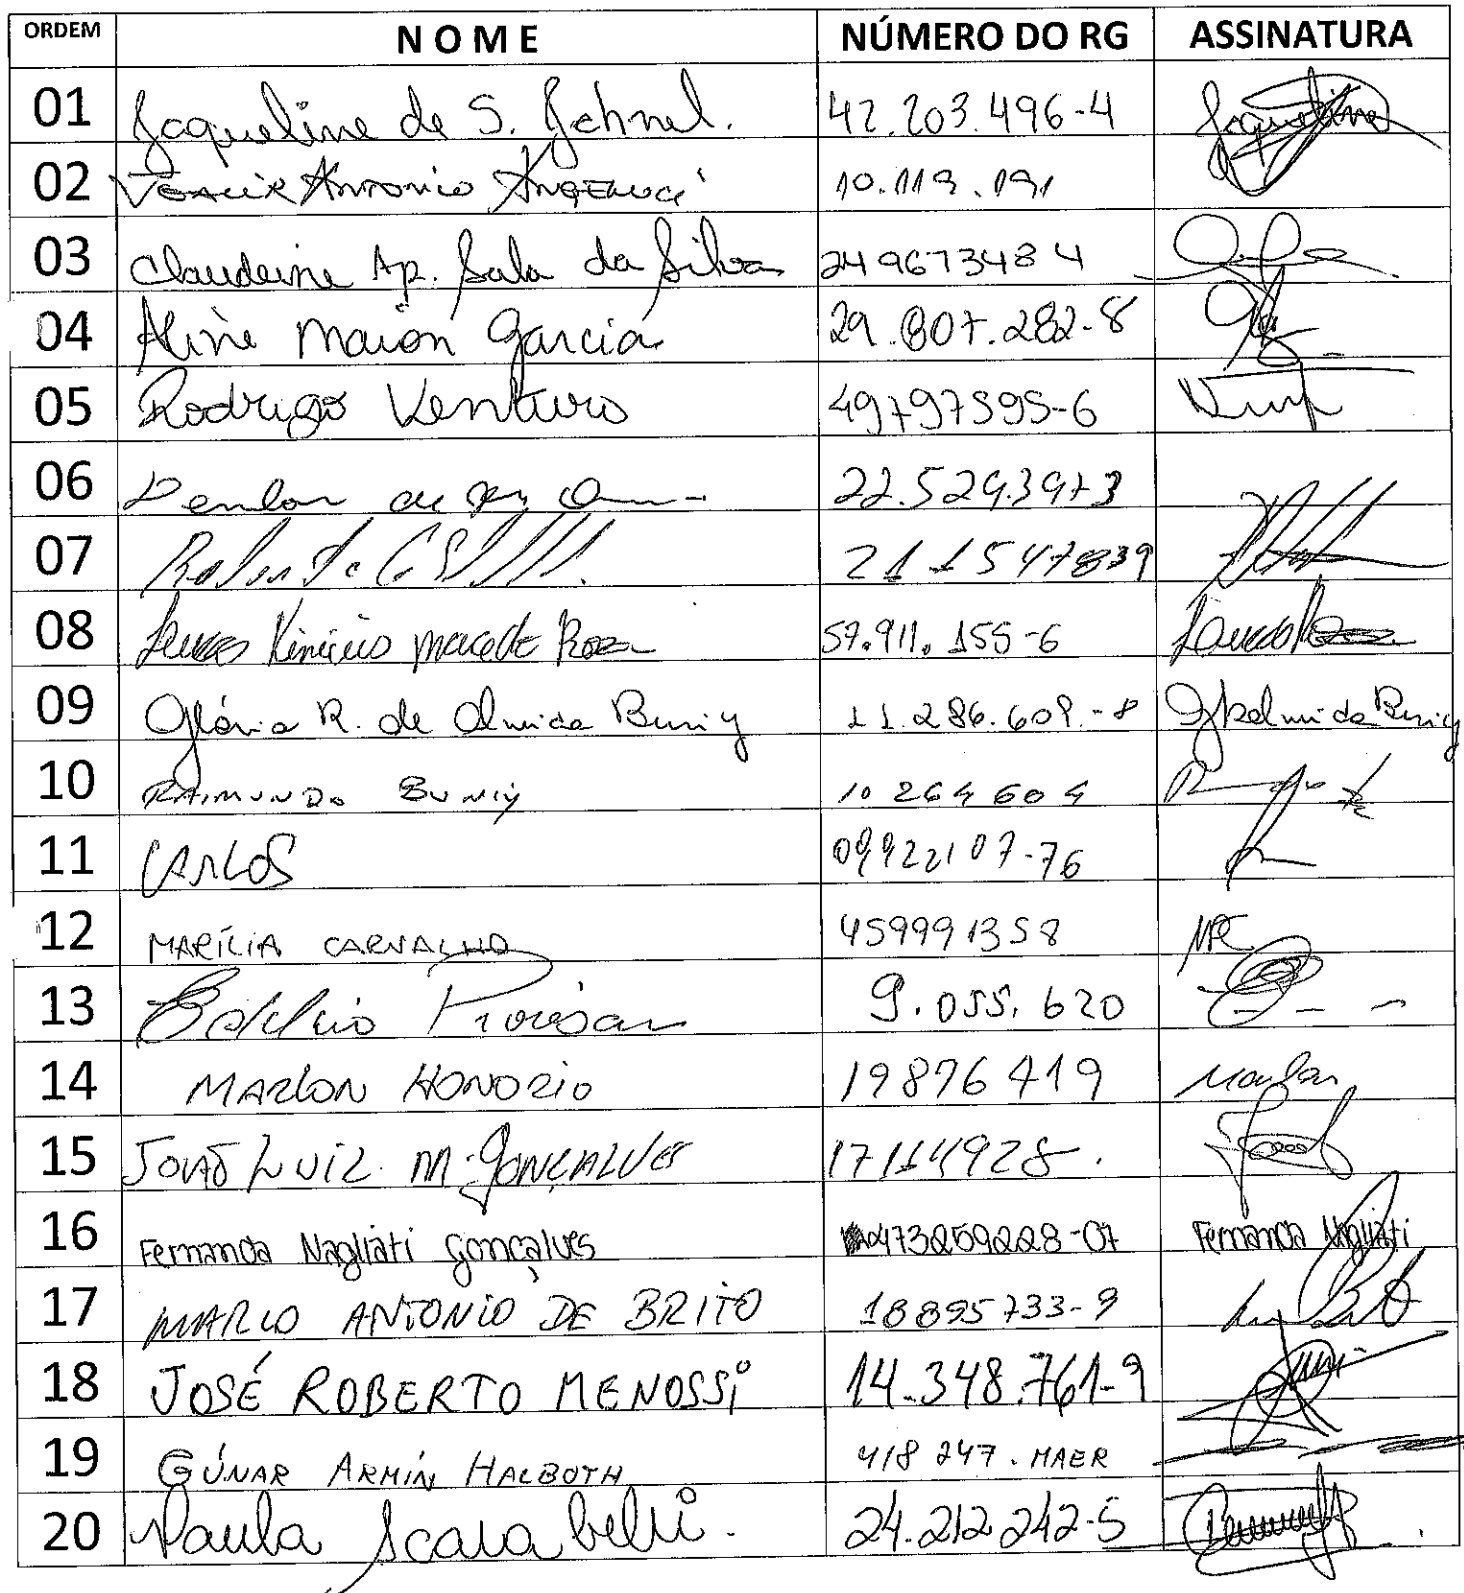 ORDEM NOME NÚMERO DO RG ASSINATURA
01 Jacqueline de S. Jehnel. 42.203.496-4 Jaqueline
02 Antonio Angeluci 10.119.191
03 Claudeine Ap. Sala da Silva 249673484
04 Aline Maion Garcia 29.807.282-8
05 Rodrigo Venturo 49797595-6
06 22.529.397-3
07 21 1547839
08 Vinicius Macedo Roza 57.911.155-6
09 Glória R. de Almeida Buniy 11.286.609-8 GRAlmeida Buniy
10 RAIMUNDO BUNIY 10 264 604
11 CARLOS 09922107-76
12 MARÍLIA CARVALHO 459991358 MC
13 9.055.620
14 MARLON HONORIO 19876419 Marlon
15 JOÃO LUIZ M. GONÇALVES 17114928.
16 Fernanda Nagliati Gonçalves 473259228-07 Fernanda Nagliati
17 MARCO ANTONIO DE BRITO 18895733-9
18 JOSÉ ROBERTO MENOSSi 14.348.761-9
19 GÚNAR ARMIN HALBOTH 418 247. MAER
20 Paula Scarabelli. 24.212.242-5